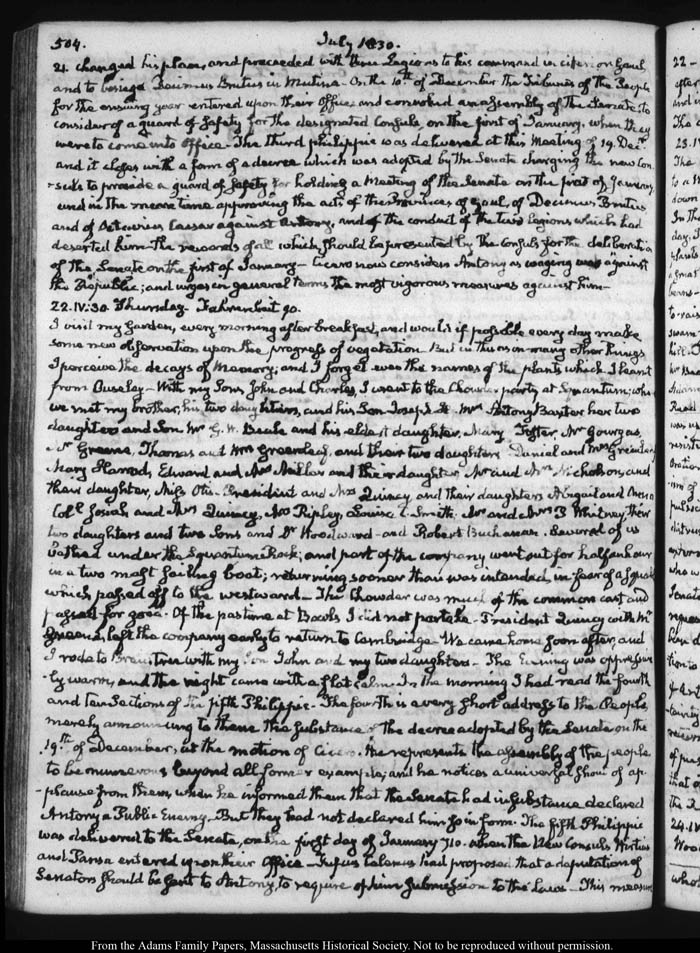 504. July 1830.
21. changed his place, and proceeded with three Legions to his command in cifer on Gaul
and to besiege Decimus Brutus in Mutina. On the 10th of December the Tribunes of the People
for the ensuing year entered upon their Office, and convoked an assembly of the Senate, to
consider of a guard of safety for the designated Consuls, on the first of January, when they
were to come into Office. The third philippic was delivered at this Meeting of 19. Decr
and it closes with a form of a decree which was adopted by the Senate charging the new Con
-suls to provide a guard of safety for holding a Meeting of the Senate on the first of January
and in the mean time approving the acts of the Provinces of Gaul, of Decimus Brutus
and of Octavius Caesar against Antony, and of the conduct of the two legions which had
deserted him. The rewards of all which should be presented by the Consuls for the deliberatio
of the Senate on the first of January. Cicero now considers Antony as waging war against
the Republic; and urges in general terms the most vigorous measures against him.
22. IV:30. Thursday. Fahrenheit 90.
I visit my Garden, every morning after breakfast, and would if possible every day make
some new observation upon the progress of vegetation. But in this as in many other things
I perceive the decays of Memory; and I forget even the names of the plants which I learnt
from Buseley. With my Sons, John and Charles, I went to the Chowder party at Squantum; where
we met my brother, his two daughters, and his Son Joseph H. Mrs Antony Baxter her two
daughters and Son Mr G. W. Beale and his eldest daughter, Mary Foster, Mr Gourgas,
Mr Greene, Thomas and Wm Greenleaf, and their two daughters Daniel and Mrs Greenleaf
Mary Harrod, Edward and Mrs Miller and their daughter, Mr and Mrs Nicholson, and
their daughter, Miss Otis. President and Mrs Quincy and their daughters Abigail and Anna
Coll. Josiah and Mrs Quincy, Mrs Ripley, Louisa C. Smith, Mr and Mrs J Whitney, their
two daughters and two Sons and Dr Woodward and Robert Buchanan. Several of us
bathed under the Squantum Rock; and part of the company went out for half an hour
in a two mast sailing boat; returning sooner than was intended, in fear of a squall
which passed off to the westward. The Chowder was much of the common cast and
passed for good. Of the pastime at Bowls I did not partake. President Quincy with Mr
Greene, left the company early to return to Cambridge. We came home soon after, and
I rode to Braintree with my Son John and my two daughters. The Evening was oppressive
-ly warm, and the night came with a flat calm. In the morning I had read the fourth
and ten Sections of the fifth Philippic. The fourth is a very short address to the People,
merely announcing to them the substance of the decree adopted by the Senate on the
19th of December, at the motion of Cicero. He represents the assembly of the people
to be numerous beyond all former example; and he notices a universal shout of ap
-plause from them, when he informed them that the Senate had in substance declared
Antony a Public Enemy. But they had not declared him so in form. The fifth Philippic
was delivered to the Senate, on the first day of January 710. when the New Consuls Hirtius
and Pansa entered upon their Office. Fufius Calenus had proposed that a deputation of
Senators should be sent to Antony, to require of him submission to the Laws. This measure
From the Adams Family Papers, Massachusetts Historical Society. Not to be reproduced without permission.